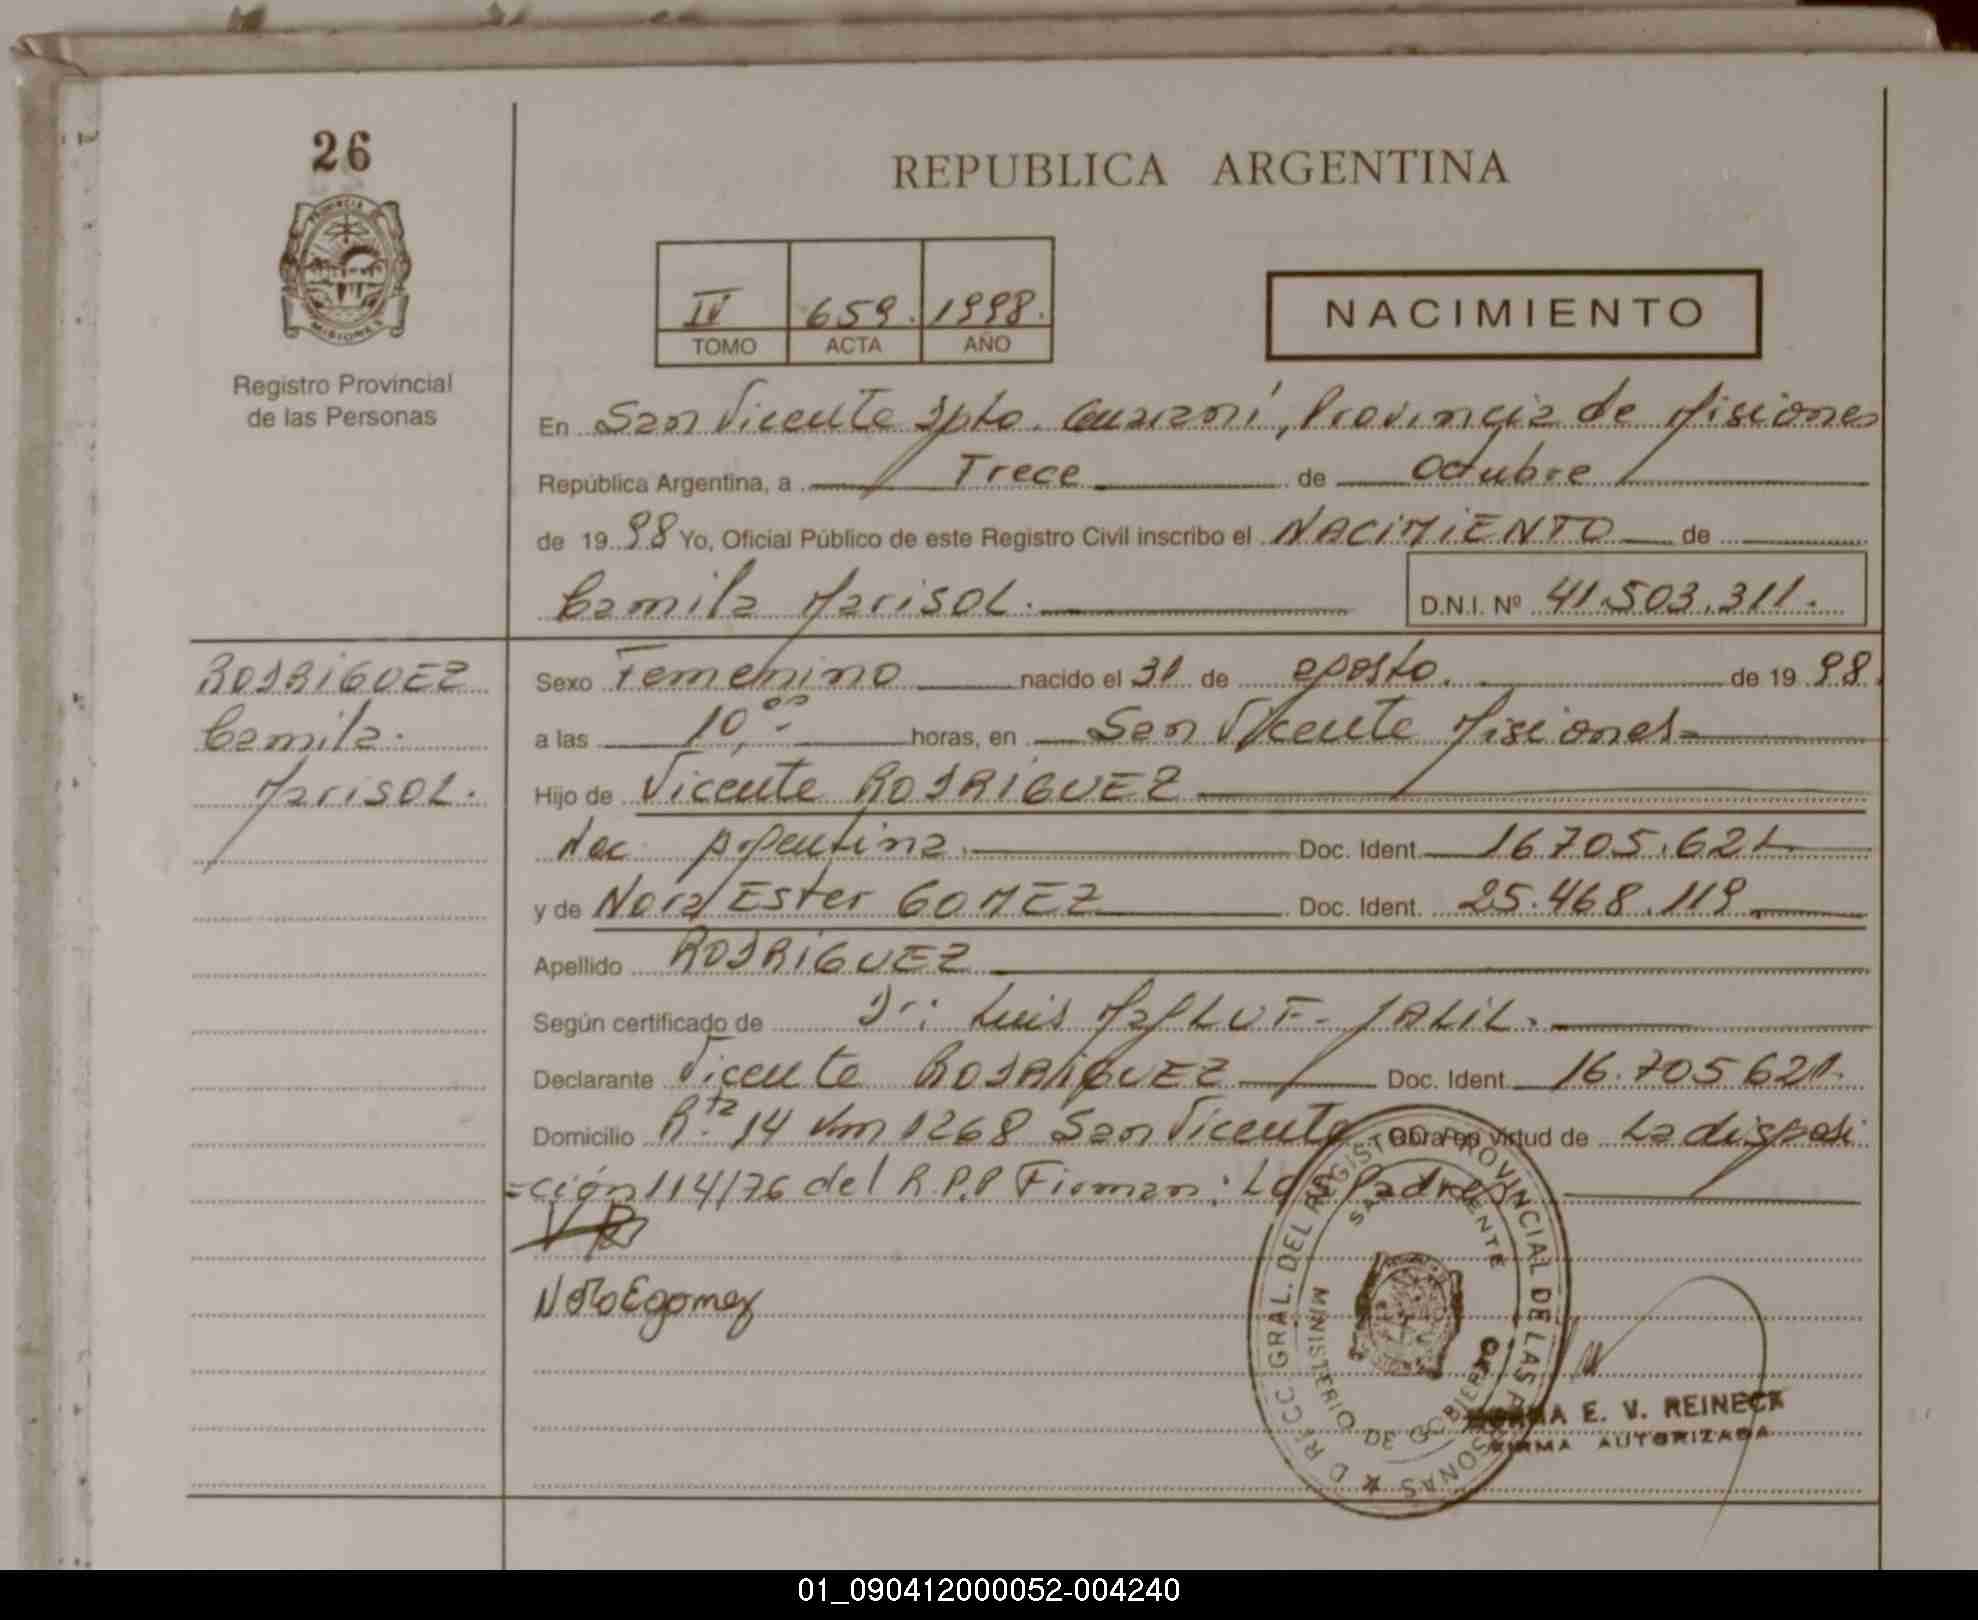 26
REPUBLICA ARGENTINA
PROVINCIA DE
MISIONES
Registro Provincial
de las Personas
IV 659. 1998.
TOMO ACTA AÑO
NACIMIENTO
En San Vicente Dpto. Guaraní, Provincia de Misiones
República Argentina, a Trece de Octubre
de 1998 Yo, Oficial Público de este Registro Civil inscribo el NACIMIENTO de
Camila Marisol. D.N.I. Nº 41.503.311.
RODRIGUEZ
Camila.
Marisol.
Sexo Femenino nacido el 31 de agosto. de 1998.
a las 10,00 horas, en San Vicente Misiones
Hijo de Vicente RODRIGUEZ
Nac. Argentina. Doc. Ident. 16.705.621
y de Nora Ester GOMEZ Doc. Ident. 25.468.119
Apellido RODRIGUEZ
Según certificado de Dr: Luis JALIL.
Declarante Vicente RODRIGUEZ Doc. Ident. 16.705621.
Domicilio R.ta 14 Km 1268 San Vicente Obra en virtud de La disposi
=ción 114/76 del R.P.P Firman: Los Padres
VR
Nora E gomez
GRAL. DEL REGISTRO PROVINCIAL DE LAS PERSONAS
SAN VICENTE
MINISTERIO DE GOBIERNO
E. V. REINECK
FIRMA AUTORIZADA
01_090412000052-004240